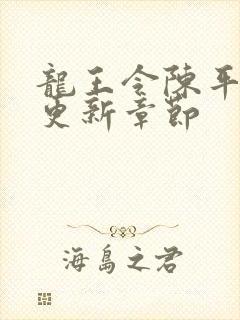 龍王令陳平
更新章節
海島之君